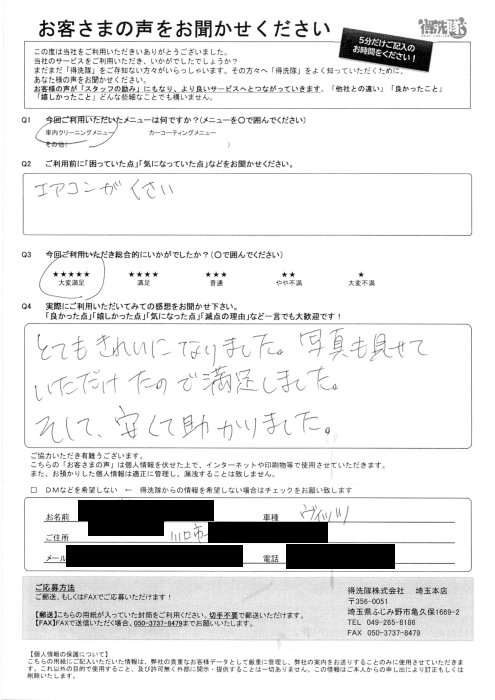 お客さまの声をお聞かせください
得洗隊
5分だけご記入の
お時間をください!
この度は当社をご利用いただきありがとうございました。
当社のサービスをご利用いただき、いかがでしたでしょうか?
まだまだ「得洗隊」をご存知ない方々がいらっしゃいます。その方々へ「得洗隊」をよく知っていただくために、
あなた様の声をお聞かせください。
お客様の声が「スタッフの励み」にもなり、より良いサービスへとつながっていきます。「他社との違い」「良かったこと」
「嬉しかったこと」どんな些細なことでも構いません。
Q1 今回ご利用いただいたメニューは何ですか?(メニューを〇で囲んでください)
車内クリーニングメニュー カーコーティングメニュー
その他( )
Q2 ご利用前に「困っていた点」「気になっていた点」などをお聞かせください。
エアコンがくさい
Q3 今回ご利用いただき総合的にいかがでしたか?(〇で囲んでください)
★★★★★ ★★★★ ★★★ ★★ ★
大変満足 満足 普通 やや不満 大変不満
Q4 実際にご利用いただいてみての感想をお聞かせ下さい。
「良かった点」「嬉しかった点」「気になった点」「減点の理由」など一言でも大歓迎です!
とてもきれいになりました。写真も見せて
いただけたので満足しました。
そして、安くて助かりました。
ご協力いただき有難うございます。
こちらの「お客さまの声」は個人情報を伏せた上で、インターネットや印刷物等で使用させていただきます。
また、お預かりした個人情報は適正に管理し、漏洩することは致しません。
□ DMなどを希望しない ← 得洗隊からの情報を希望しない場合はチェックをお願い致します
お名前 車種 ヴィッツ
ご住所 川口市
メール 電話
ご応募方法
ご郵送、もしくはFAXでご応募いただけます!
【郵送】こちらの用紙が入っていた封筒をご利用ください。切手不要で郵送いただけます。
【FAX】FAXで送信いただく場合、050-3737-8479までお願いいたします。
得洗隊株式会社 埼玉本店
〒356-0051
埼玉県ふじみ野市亀久保1669-2
TEL 049-265-8186
FAX 050-3737-8479
【個人情報の保護について】
こちらの用紙にご記入いただいた情報は、弊社の貴重なお客様データとして厳重に管理し、弊社の案内をお送りすることのみに使用させていただきま
す。これ以外の目的で使用すること、及び許可無く外部に開示・提供することは一切ありません。この情報はご本人からの申し出により訂正もしくは
削除いたします。